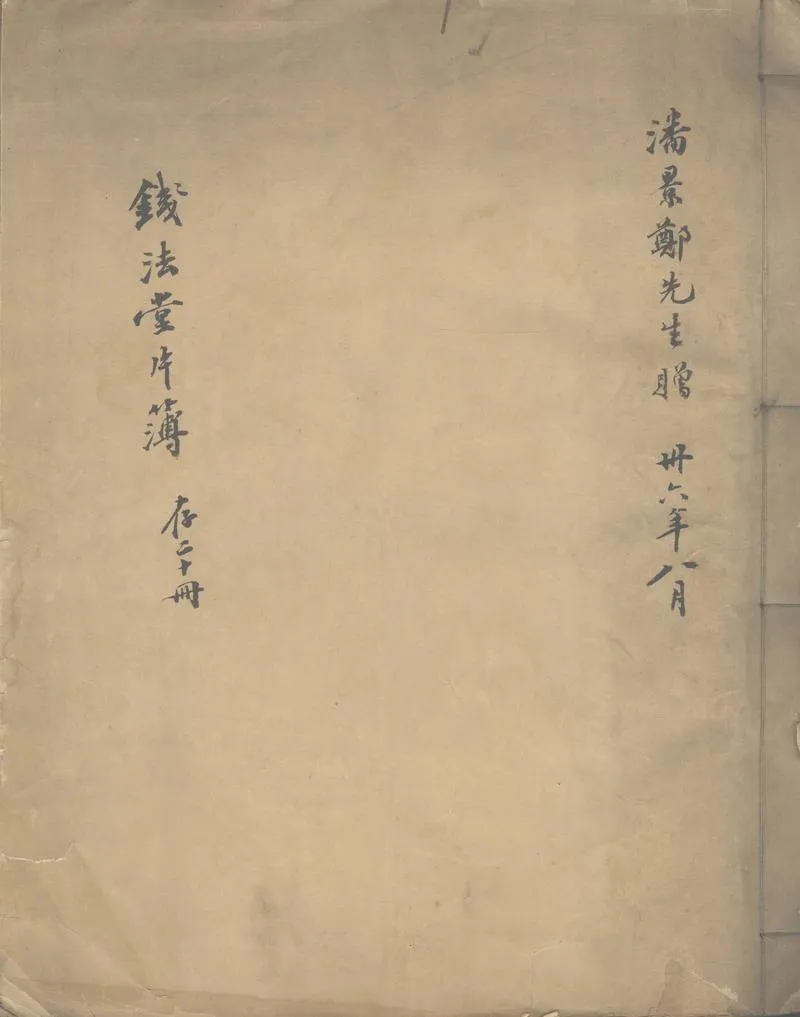 潘景鄭先生贈 卅六年八月
錢法堂片簿 存二十冊